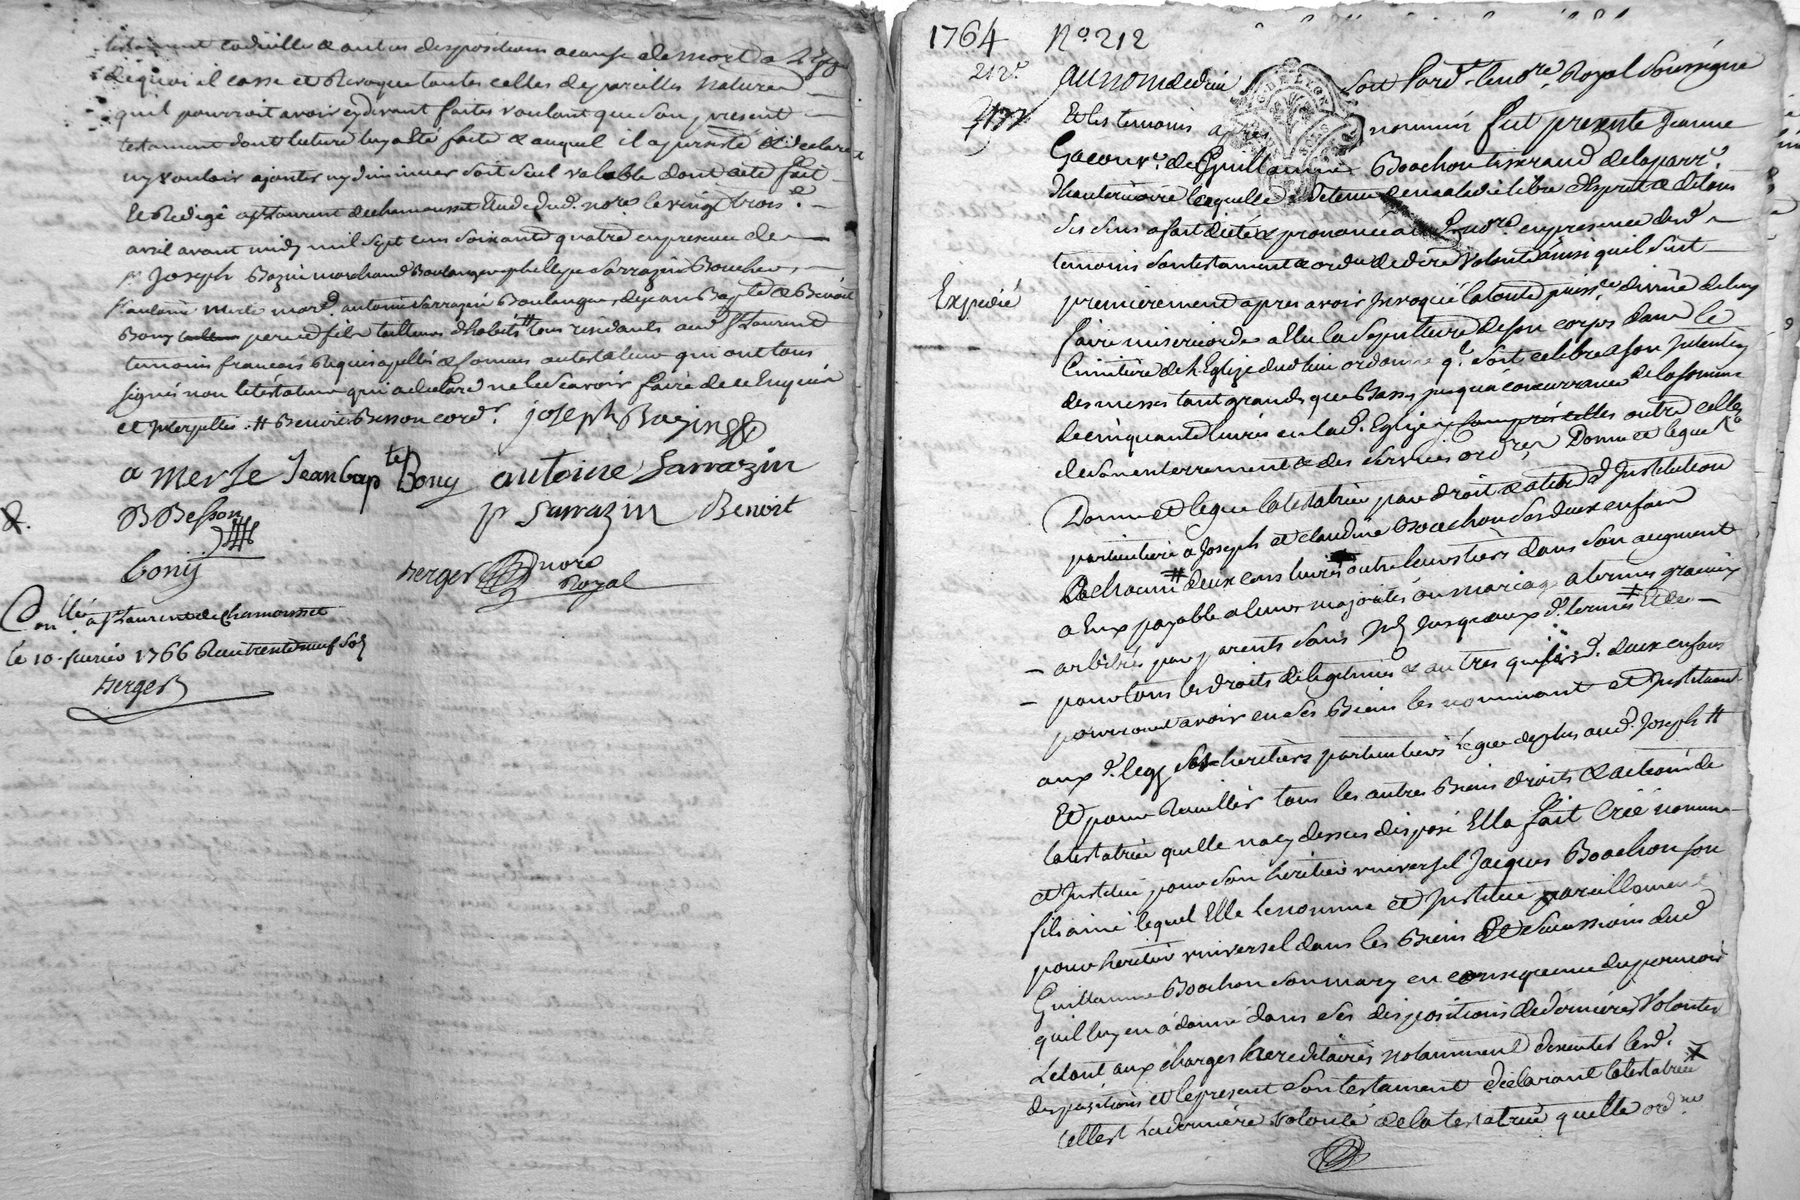 testament codicille & autres dispositions a cause de mort
de quoi il casse et Revoque toutes celles de pareilles Nature
quil pourroit avoir cy devant faites voulant que son present
testament dont lecture luy a été faite & auquel il a persisté & déclaré
ny vouloir ajouter ny diminuer soit seul valable dont acte fait
Et Redigé a st Laurent de chamousset Etude dud. nore. le vingt trois e.
avril avant midy mil sept cens soixante quatre en presence de
sr. Joseph Bazin marchand Boulanger phellype Sarrazin Boucher,
sr antoine Merle mard. antoine Sarrazin Boulanger, de jean Bapte & Benoit
Bony pere et fils tailleurs d'habits # tous residants aud st Laurent
temoins francois Requis apellés & connus au testateur qui ont tous
signés non le testateur qui a declaré ne le scavoir faire de ce Enquis
et Interpellé. # Benoit Besson cordr. joseph Bazin
a merle Jean bapte Bony antoine Sarrazin
B Besson p Sarrazin Benoit
bony
Berger nore Royal
Conllé a st Laurent de Chamousset
le 10 fevrier 1766 R trente neuf sols
Berger
1764 No. 212
212e.
au nom de dieu soit Pard. le nore. Royal soussigné
Et les temoins apres nommés fut presente Jeanne
Gacon ve. de Guillaume Boachon tisserand de la parr.
d'hauterivoire laquelle detenue de maladie libre d'esprit & de tous
ses sens a fait dicté & prononcé aud nore en presence desd
temoins son testament & ordce de dre volonté ainsi quil suit
Expedié
premierement apres avoir Invoqué la toute puissce divine de luy
faire misericorde a Elu la sepulture de son corps dans le
Cimitière de l'Eglise dud lieu ordonne qe. soit celebré a son Intention
des messes tant grandes que Basses jusqu'a concurrance de la somme
de cinquante livres en lad. Eglise y compris celles outre celles
de son enterrement & des services ordres. Donne et legue
Donne et legue la testatrice par droit & titre d'Institution
particuliere a Joseph et claudine Boachon ses deux enfans
a chacun # deux cens livres outre leurs tiers dans son augment
a Eux payable a leurs majorités ou mariage a termes gracieux
arbitrés par parents sans Int jusqueaux d. termes Et ce
pour tous les droits de legitimes & autres que lesd. deux enfans
pourroient avoir en ses Biens les nommant et Instituant
aux d. legs ses heritiers particuliers legue de plus aud. Joseph #
Et pour Recuillir tous les autres Biens droits & actions de
la testatrice quelle na cy dessus disposé Elle fait Créé nomme
et Institue pour son heritier universel Jacques Boachon son
fils ainé lequel Elle le nomme et Institue pareillement
pour heritier universel dans les Biens Et successions dud
Guillaume Boachon son mary en consequence du pouvoir
quil luy en a donné dans ses dispositions de dernieres Volontés
Le tout aux charges hereditaires notamment d'executer lesd.
dispositions et le present son testament declarant la testatrice
telle est sa derniere volonté de la testatrice quelle ordne